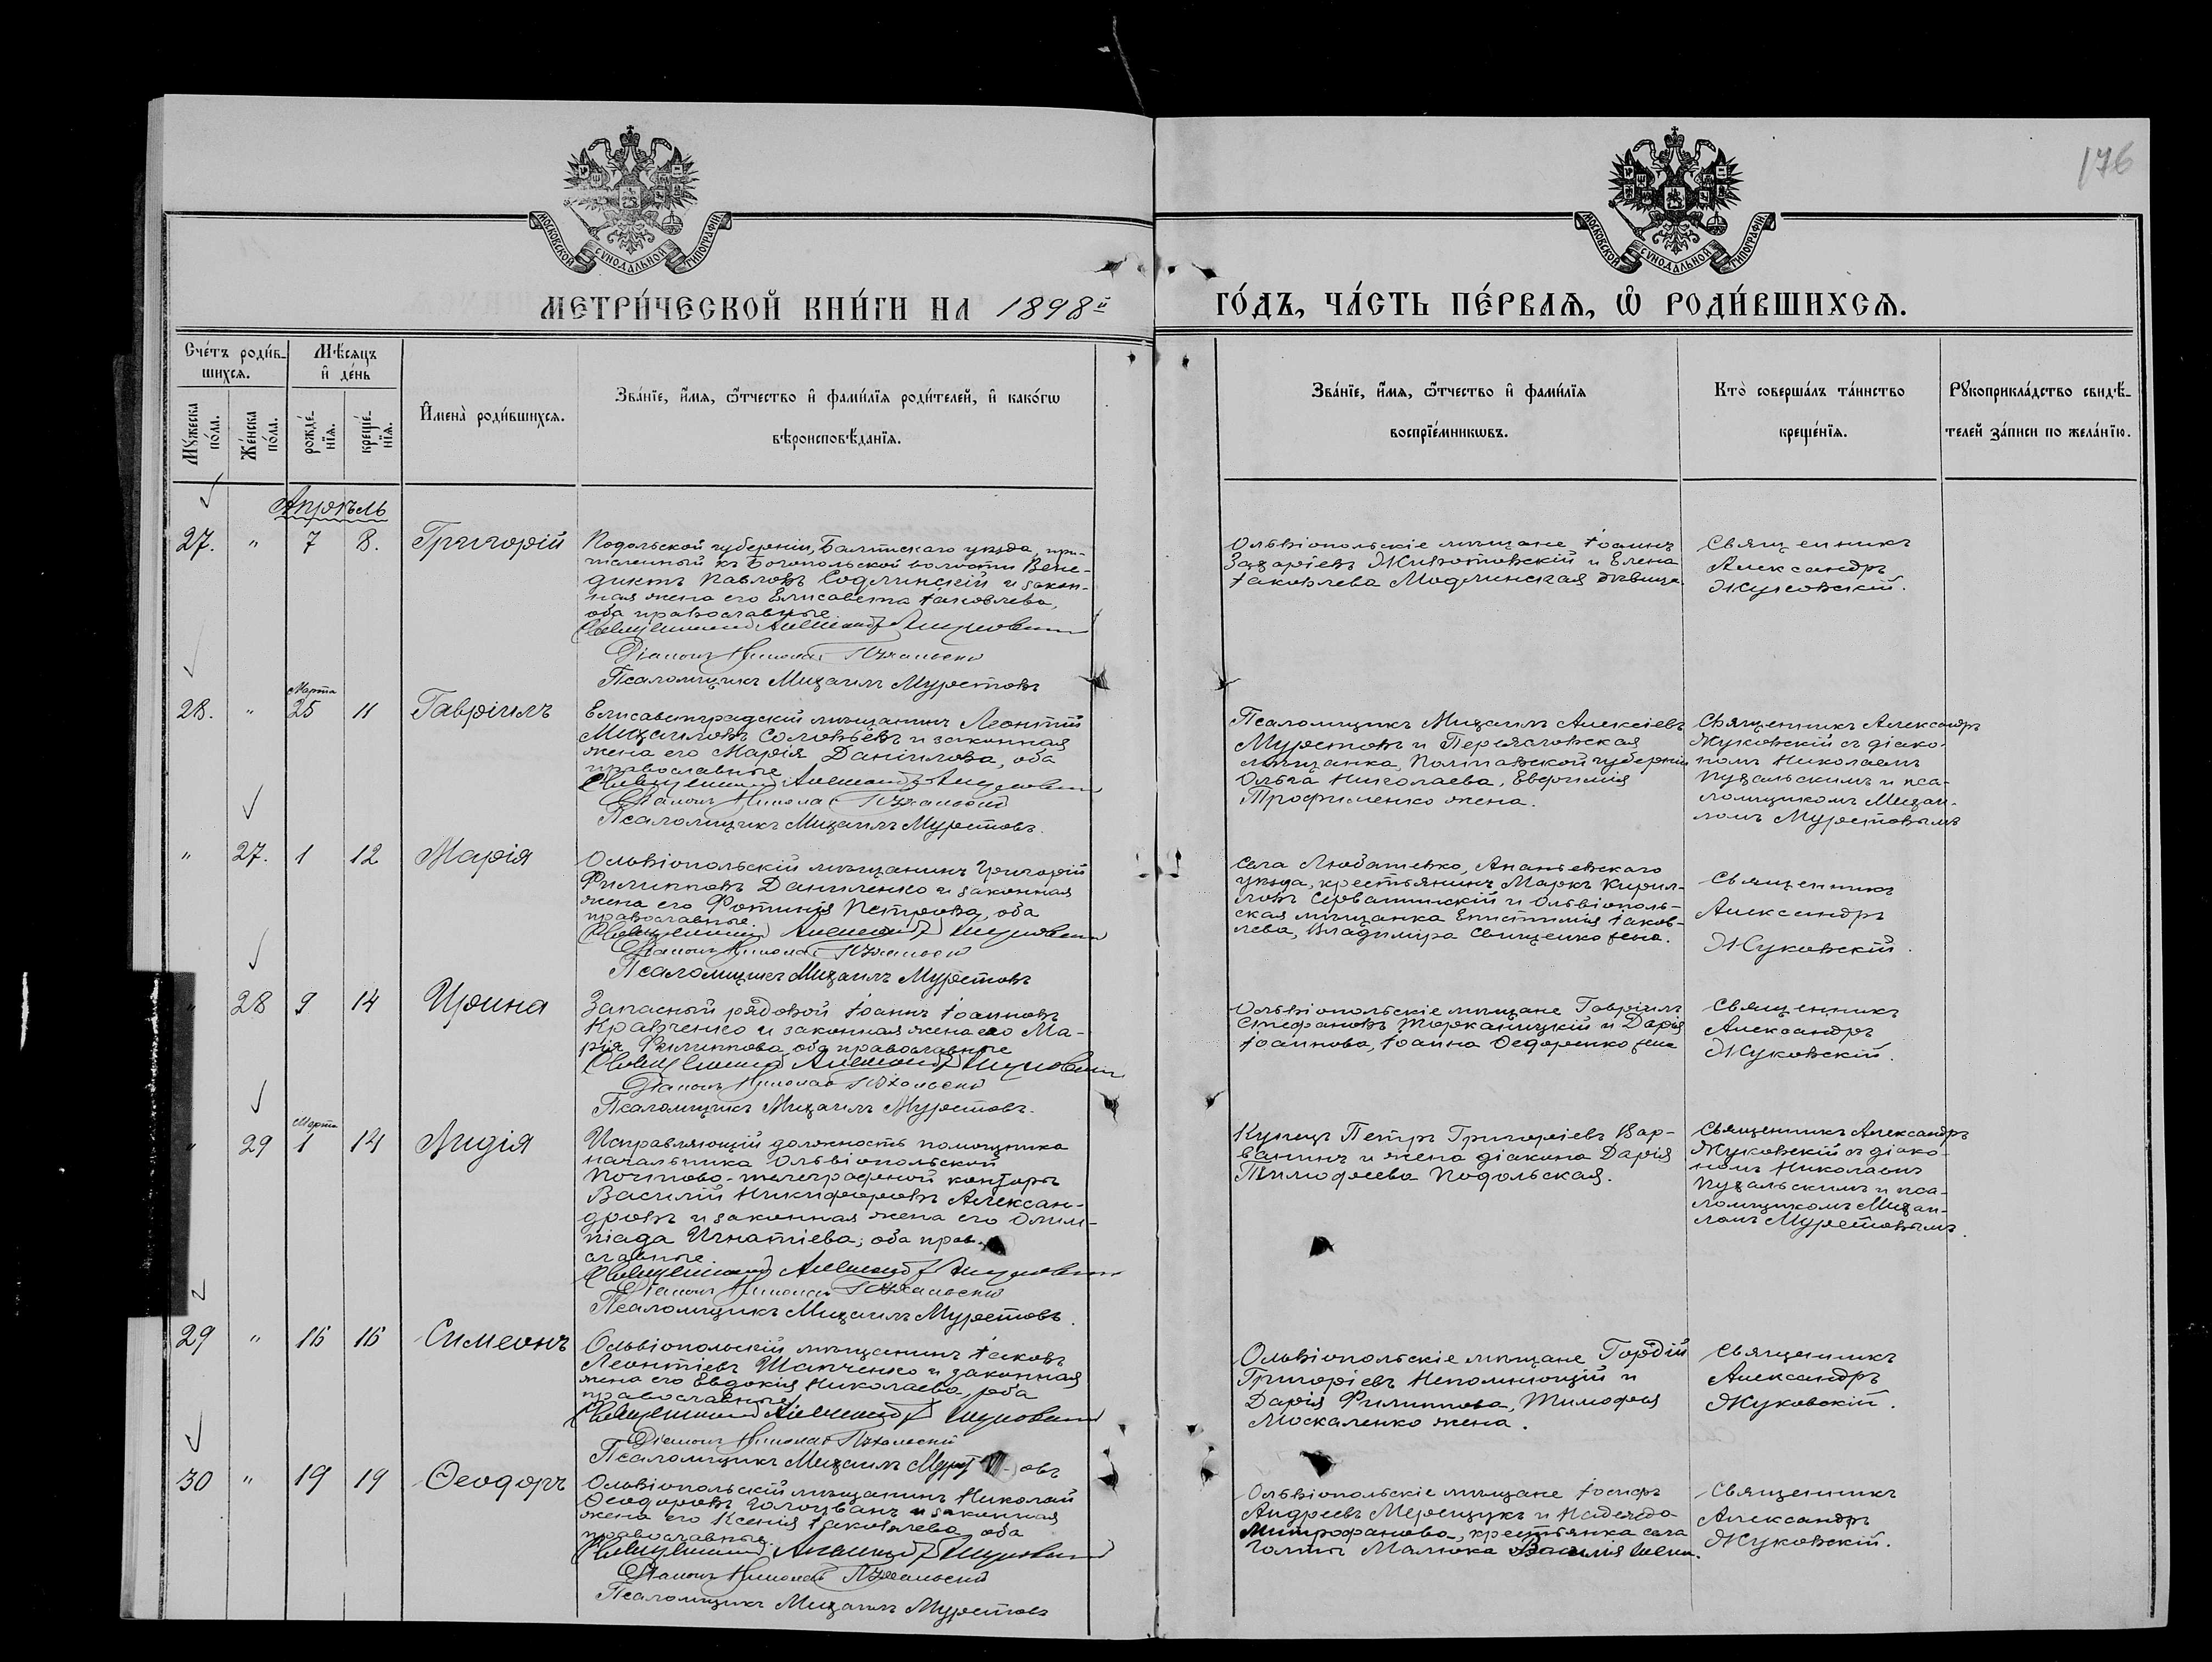 176
МОСКОВСКОЙ СѴНОДАЛЬНОЙ ТИПОГРАФІИ
МОСКОВСКОЙ СѴНОДАЛЬНОЙ ТИПОГРАФІИ
МЕТРИ́ЧЕСКОЙ КНИ́ГИ НА 1898й
ГО́ДЪ, ЧА́СТЬ ПЕ́РВАѦ, Ѽ РОДИ́ВШИХСѦ.
Сче́тъ роди́в-
шихсѧ.
Мѣ́сѧцъ
и҆ де́нь
Мꙋ́жеска
по́ла.
Же́нска
по́ла.
рожде́-
нїѧ.
креще́-
нїѧ.
И҆мена̀ роди́вшихсѧ.
Зва́нїе, и҆́мѧ, ѻ҆́тчество и҆ фами́лїѧ роди́телей, и҆ како́гѡ
вѣроисповѣ́данїѧ.
Зва́нїе, и҆́мѧ, ѻ҆́тчество и҆ фами́лїѧ
воспрїе́мникѡвъ.
Кто̀ соверша́лъ та́инство
креще́нїѧ.
Рꙋкоприкла́дство свидѣ́-
телей за́писи по жела́нїю.
Апрѣль
27. " 7 8. Григорій
Подольской губерніи, Балтскаго уѣзда, при-
численный къ Богопольской волости Вене-
диктъ Павловъ Содлинскій и закон-
ная жена его Елисавета Іаковлева,
оба православные.
Священникъ Александръ Жуковскій
Діаконъ Николай Пузальскій
Псаломщикъ Михаилъ Муретовъ
Ольвіопольскіе мѣщане Іоаннъ
Захаріевъ Животовскій и Елена
Іаковлева Модлинская дѣвица.
Священникъ
Александръ
Жуковскій.
Марта
28. " 25 11 Гавріилъ
Елисаветградскій мѣщанинъ Леонтій
Михаиловъ Соловьевъ и законная
жена его Марія Даніилова, оба
православные
Священникъ Александръ Жуковскій
Діаконъ Николай Пузальскій
Псаломщикъ Михаилъ Муретовъ.
Псаломщикъ Михаилъ Алексіевъ
Муретовъ и Переяславская
мѣщанка, Полтавской губерніи
Ольга Николаева, Евфимія
Трофименко жена.
Священникъ Александръ
Жуковскій съ діако-
номъ Николаемъ
Пузальскимъ и пса-
ломщикомъ Михаи-
ломъ Муретовымъ
" 27. 1 12 Марія
Ольвіопольскій мѣщанинъ Григорій
Филипповъ Даниленко и законная
жена его Фотинія Петрова, оба
православные
Священникъ Александръ Жуковскій
Діаконъ Николай Пузальскій
Псаломщикъ Михаилъ Муретовъ
Села Любашевко, Ананьевскаго
уѣзда, крестьянинъ Маркъ Кирил-
ловъ Серватинскій и Ольвіополь-
ская мѣщанка Епистимія Іаков-
лева, Владиміра Свищенко жена.
Священникъ
Александръ
Жуковскій.
" 28 9 14 Ирина
Запасный рядовой Іоаннъ Іоанновъ
Кравченко и законная жена его Ма-
рія Филиппова, оба православные
Священникъ Александръ Жуковскій
Діаконъ Николай Пузальскій
Псаломщикъ Михаилъ Муретовъ.
Ольвіопольскіе мѣщане Гавріилъ
Стефановъ Торканицкій и Дарія
Іоаннова, Іоанна Федоренко жена
Священникъ
Александръ
Жуковскій.
Марта
" 29 1 14 Лидія
Исправляющій должность помощника
начальника Ольвіопольской
почтово-телеграфной конторы
Василій Никифоровъ Алексан-
дровъ и законная жена его Олим-
піада Игнатіева, оба прав
славные
Священникъ Александръ Жуковскій
Діаконъ Николай Пузальскій
Псаломщикъ Михаилъ Муретовъ.
Купецъ Петръ Григоріевъ Вар-
ванинъ и жена діакона Дарія
Тимофеева Подольская.
Священникъ Александръ
Жуковскій съ діако-
номъ Николаемъ
Пузальскимъ и пса-
ломщикомъ Михаи-
ломъ Муретовымъ.
29 " 16 16 Симеонъ
Ольвіопольскій мѣщанинъ Іаковъ
Леонтіевъ Шапченко и законная
жена его Евдокія Николаева, оба
православные
Священникъ Александръ Жуковскій
Діаконъ Николай Пузальскій
Псаломщикъ Михаилъ Мурет овъ
Ольвіопольскіе мѣщане Гордій
Григоріевъ Непомнющій и
Дарія Филиппова, Тимофея
Москаленко жена.
Священникъ
Александръ
Жуковскій.
30 " 19 19 Ѳеодоръ
Ольвіопольскій мѣщанинъ Николай
Ѳеодоровъ Голоцванъ и законная
жена его Ксенія Іаковлева, оба
православные.
Священникъ Александръ Жуковскій
Діаконъ Николай Пузальскій
Псаломщикъ Михаилъ Муретовъ
Ольвіопольскіе мѣщане Іосифъ
Андреевъ Мерещукъ и Надежда
Митрофанова, крестьянка села
Голты Малюка Василія жена.
Священникъ
Александръ
Жуковскій.